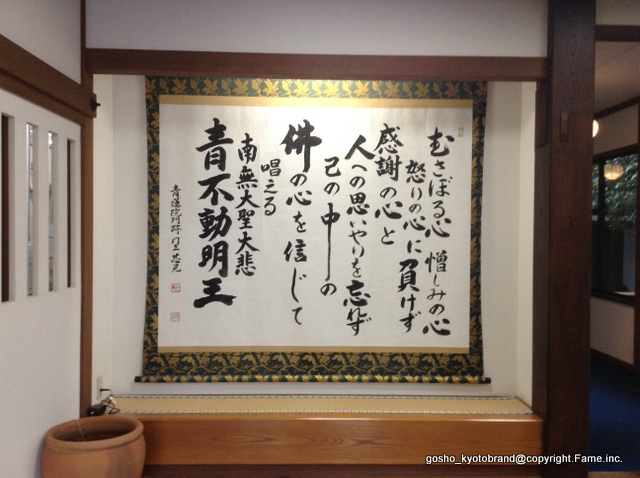 むさぼる心 憎しみの心
怒りの心に負けず
感謝の心と
人への思いやりを忘れず
己の中の
佛の心を信じて
唱える
南無大聖大悲
青不動明王
青蓮院門跡 門主
gosho_kyotobrand@copyright.Fame.inc.